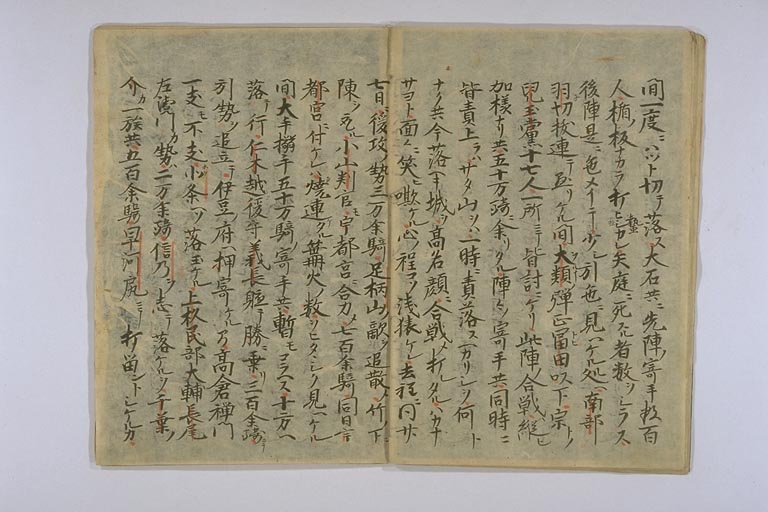 間一度ニハツト切テ落ス大石共ニ先陣ノ寄手数百
人楯ノ板ナカラ打ヒシカレ矢庭ニ死スル者数ヲシラス
後陣是ニ色メイテ少シ引色ニ見ヘケル処ヘ南部
羽切抜連テ出ケル間大類弾正富田以下宗トノ
児玉黨十七人一所ニテ皆討レニケリ此陣ノ合戦縦ヒ
加様ナリ共五十万騎ニ余リタル陣々ノ寄手共同時ニ
皆責上ラハサタ山ヲハ一時ニ責落スヘカリシヲ何ト
ナク共今落ヘキ城ヲ高名顔ニ合戦メ打タルハカナ
サヨト面々ニ笑ヒ嘲ケル心ノ程コソ浅猿ケレ去程ニ同廿
七日ニ後攻ノ勢三万余騎足柄山ノ敵ヲ追散メ竹ノ下ニ
陳ヲ取ル小山判官モ宇都宮ニ合力メ七百余騎同日ニ古
都宮ニ付ケレハ焼連タル篝火ノ数ヲヒタヽシク見ヘケル
間大手搦手五十万騎ノ寄手共暫モコラヘス十方ヘ
落テ行仁木越後守義長軈テ勝ニ乗リ三百余騎ニテ
引勢ヲ追立テ伊豆府ヘ押寄ケルアイタ高倉禅門
一支モ不支小条ニソ落玉ケル上杦民部大輔長尾
左衛門カ勢二万余騎ハ信乃ヲ志テ落ケルヲ千葉ノ
介カ一族共五百余騎早河尻ニテ打留ントシケルカ